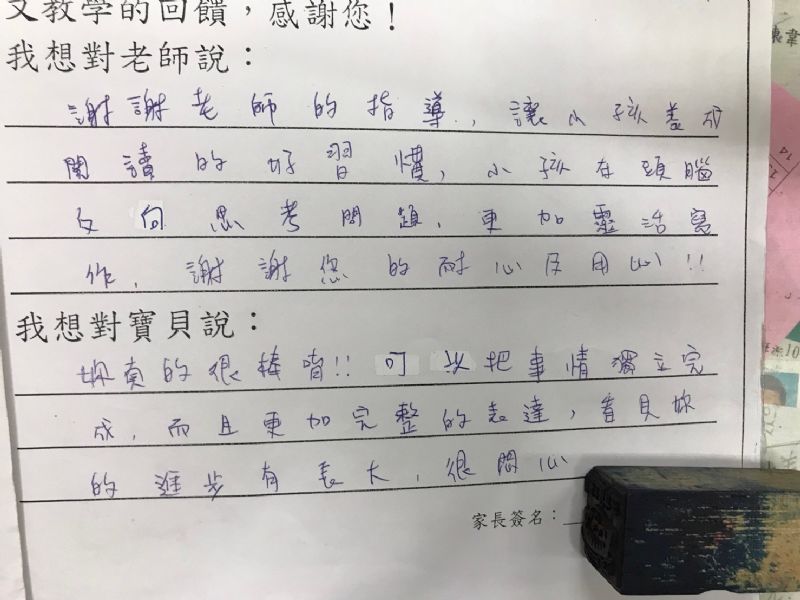 文教學的回饋，感謝您！
我想對老師說：
謝謝老師的指導，讓小孩養成
閱讀的好習慣，小孩在頭腦
反向思考問題，更加靈活寫
作，謝謝您的耐心及用心!!
我想對寶貝說：
妳真的很棒唷!! 可以把事情獨立完
成，而且更加完整的表達，看見妳
的進步有長大，很開心
家長簽名：